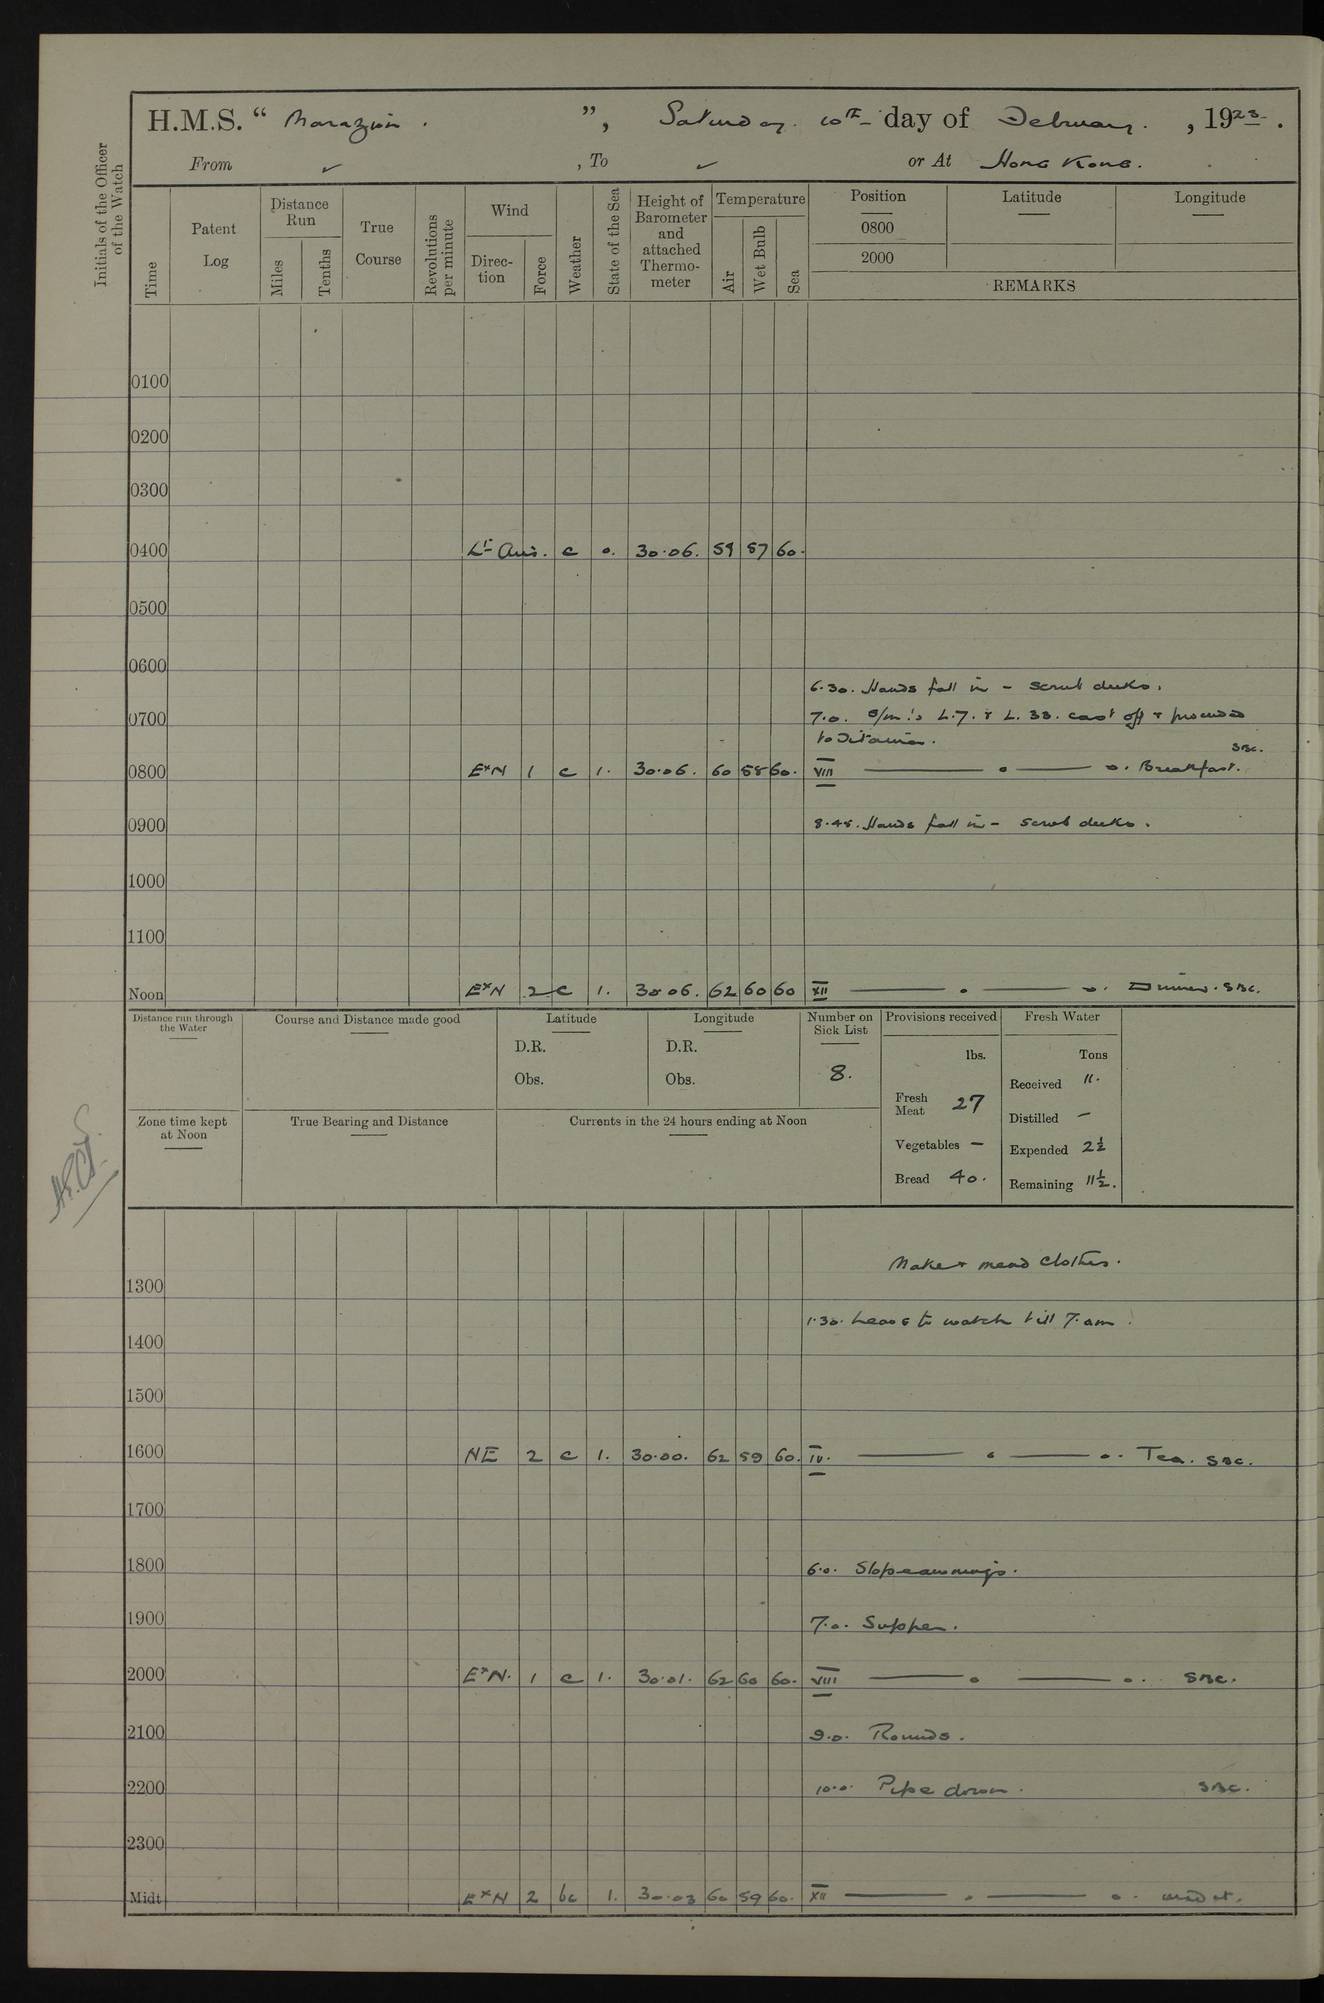 H.M.S. " Marazion . ", Saturday. 10th day of February. , 1923 .
From ✓ , To ✓ or At Hong Kong.
Initials of the Officer of the Watch
Time
Patent Log
Distance Run
Miles
Tenths
True Course
Revolutions per minute
Wind
Direc-tion
Force
Weather
State of the Sea
Height of Barometer and attached Thermo-meter
Temperature
Air
Wet Bulb
Sea
Position Latitude Longitude
0800
2000
REMARKS
0100
0200
0300
0400 Lt Airs. c 0. 30.06. 59 57 60.
0500
0600
6.30. Hands fall in - scrub decks.
0700 7.0. S/m's L.7. & L. 33. cast off & proceeded
to
SBC.
0800 ExN 1 c 1. 30.06. 60 58 60. VIII — o — o. Breakfast.
0900 8.45. Hands fall in - scrub decks.
1000
1100
Noon ExN 2 c 1. 30.06. 62 60 60 XII — o — o. Dinner. SBC.
Distance run through the Water
Course and Distance made good
Latitude
D.R.
Obs.
Longitude
D.R.
Obs.
Number on Sick List
8.
Provisions received
lbs.
Fresh Meat 27
Vegetables —
Bread 40.
Fresh Water
Tons
Received 11.
Distilled —
Expended 2½
Remaining 11½.
Zone time kept at Noon
True Bearing and Distance
Currents in the 24 hours ending at Noon
Make & mend clothes.
1300
1.30. Leave to watch till 7. am.
1400
1500
1600 NE 2 c 1. 30.00. 62 59 60. IV. — o — o. Tea. SBC.
1700
1800 6.0. Slope awnings.
1900 7.0. Supper.
2000 ExN. 1 c 1. 30.01. 62 60 60. VIII — o — o. SBC.
2100 9.0. Rounds.
2200 10.0. Pipe down. SBC.
2300
Midt. ExN 2 bc 1. 30.03 60 59 60. XII — o — o.